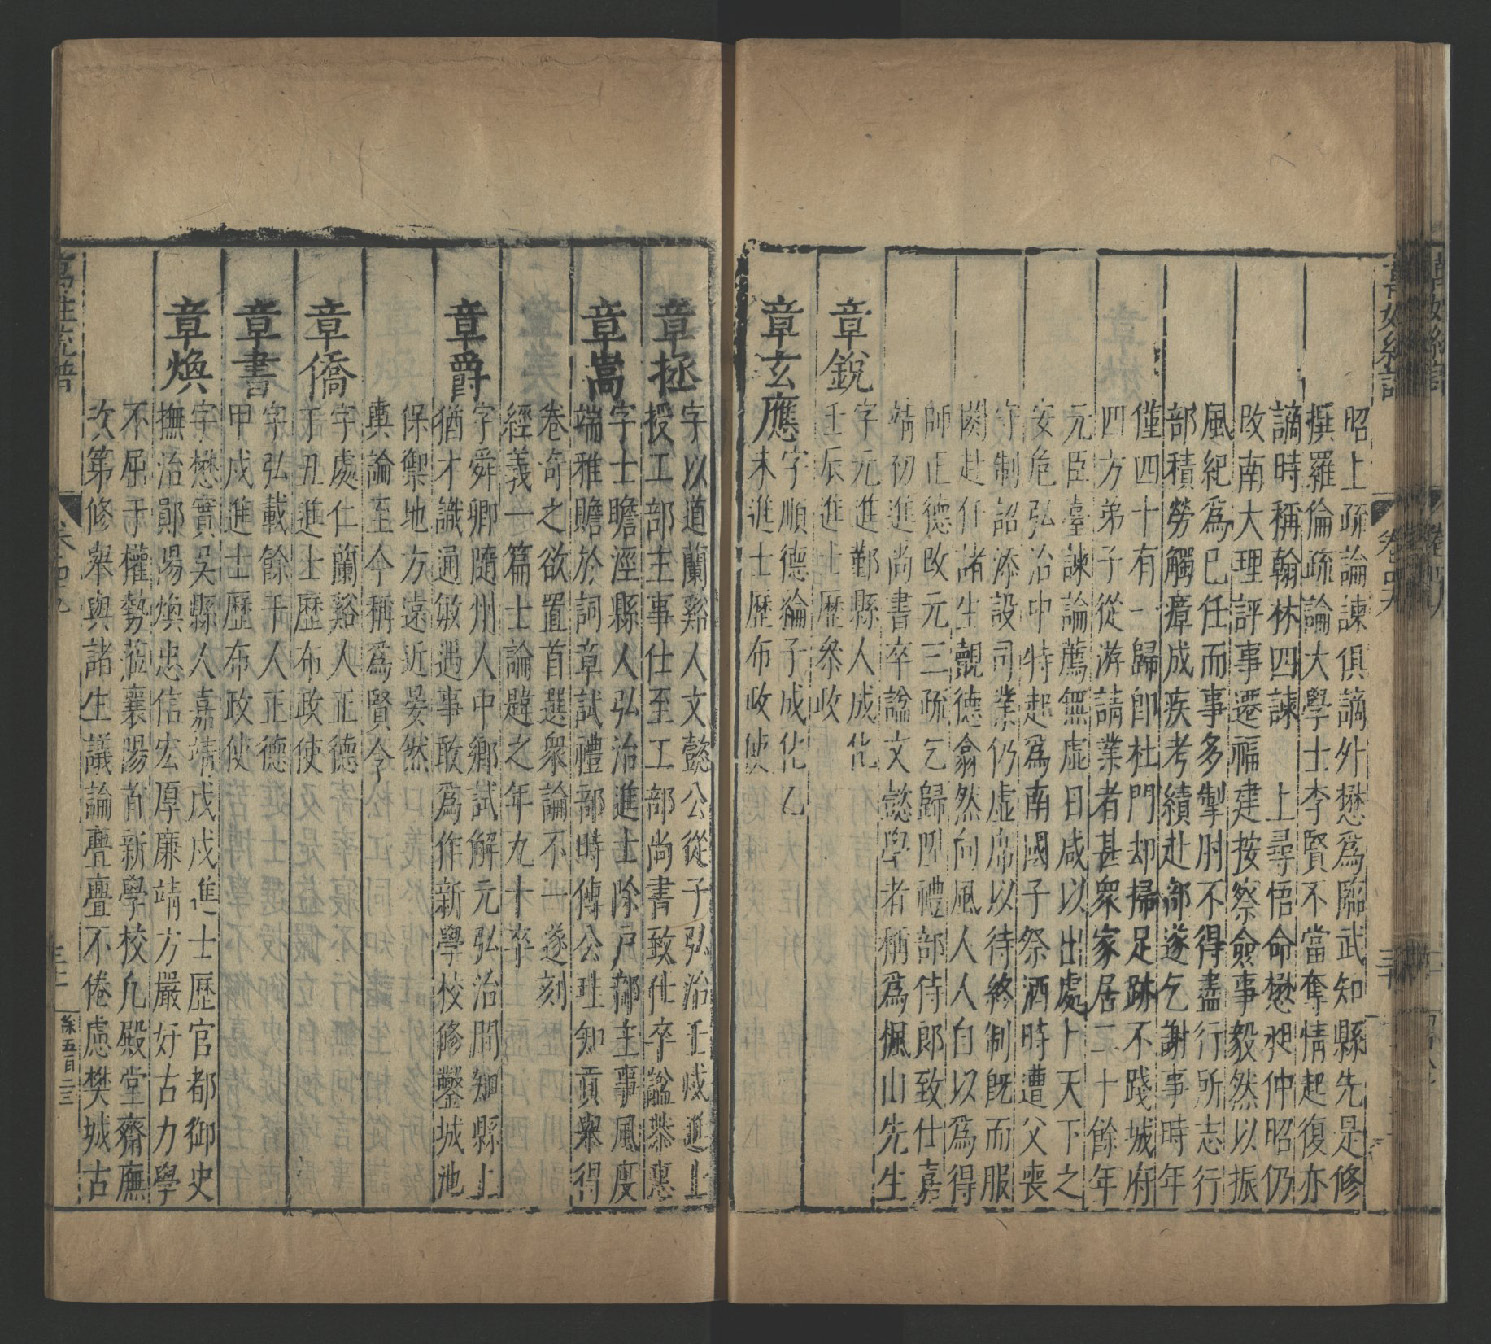 昭上疏論諫俱謫外懋爲臨武知縣先是修
撰羅倫疏論大學士李賢不當奪情起復亦
謫時稱翰林四諫　上尋悟命懋昶仲昭仍
改南大理評事遷福建按察僉事毅然以振
風紀爲己任而事多掣肘不得盡行所志行
部積勞觸瘴成疾考績赴部遂乞謝事時年
僅四十有一歸卽杜門却掃足跡不踐城府
四方弟子從游請業者甚衆家居二十餘年
元臣臺諫論薦無虛日咸以出處卜天下之
安危弘治中特起爲南國子祭酒時遭父喪
守制詔添設司業仍虛席以待終制旣而服
闋赴任諸生覩德翕然向風人人自以爲得
師正德改元三疏乞歸 禮部侍郎致仕嘉
靖初進尚書卒謚文懿學者稱爲楓山先生
章銳
字元進鄞縣人成化
壬辰進士歷參政
章玄應
字順德綸子成化乙
未進士歷布政使
章拯
字以道蘭谿人文懿公從子弘治壬戌進士
授工部主事仕至工部尚書致仕卒謚恭惠
章嵩
字士瞻涇縣人弘治進士除戶部主事風度
端雅贍於詞章試禮部時傅公珪知貢舉得
卷奇之欲置首選衆論不 遂刻
經義一篇士論趨之年九十卒
章爵
字舜卿隨州人中鄉試解元弘治間知縣上
猶才識通敏遇事敢爲作新學校修鑿城池
保禦地方遠近晏然
輿論至今稱爲賢令
章僑
字處仁蘭谿人正德
丁丑進士歷布政使
章書
字弘載餘干人正德
甲戌進士歷布政使
章煥
字懋實吳縣人嘉靖戊戌進士歷官都御史
撫治鄖陽煥忠信宏厚廉靖方嚴好古力學
不屈于權勢蒞襄陽首新學校凡殿堂齋廡
次第修舉與諸生議論亹亹不倦慮樊城古
萬姓統譜